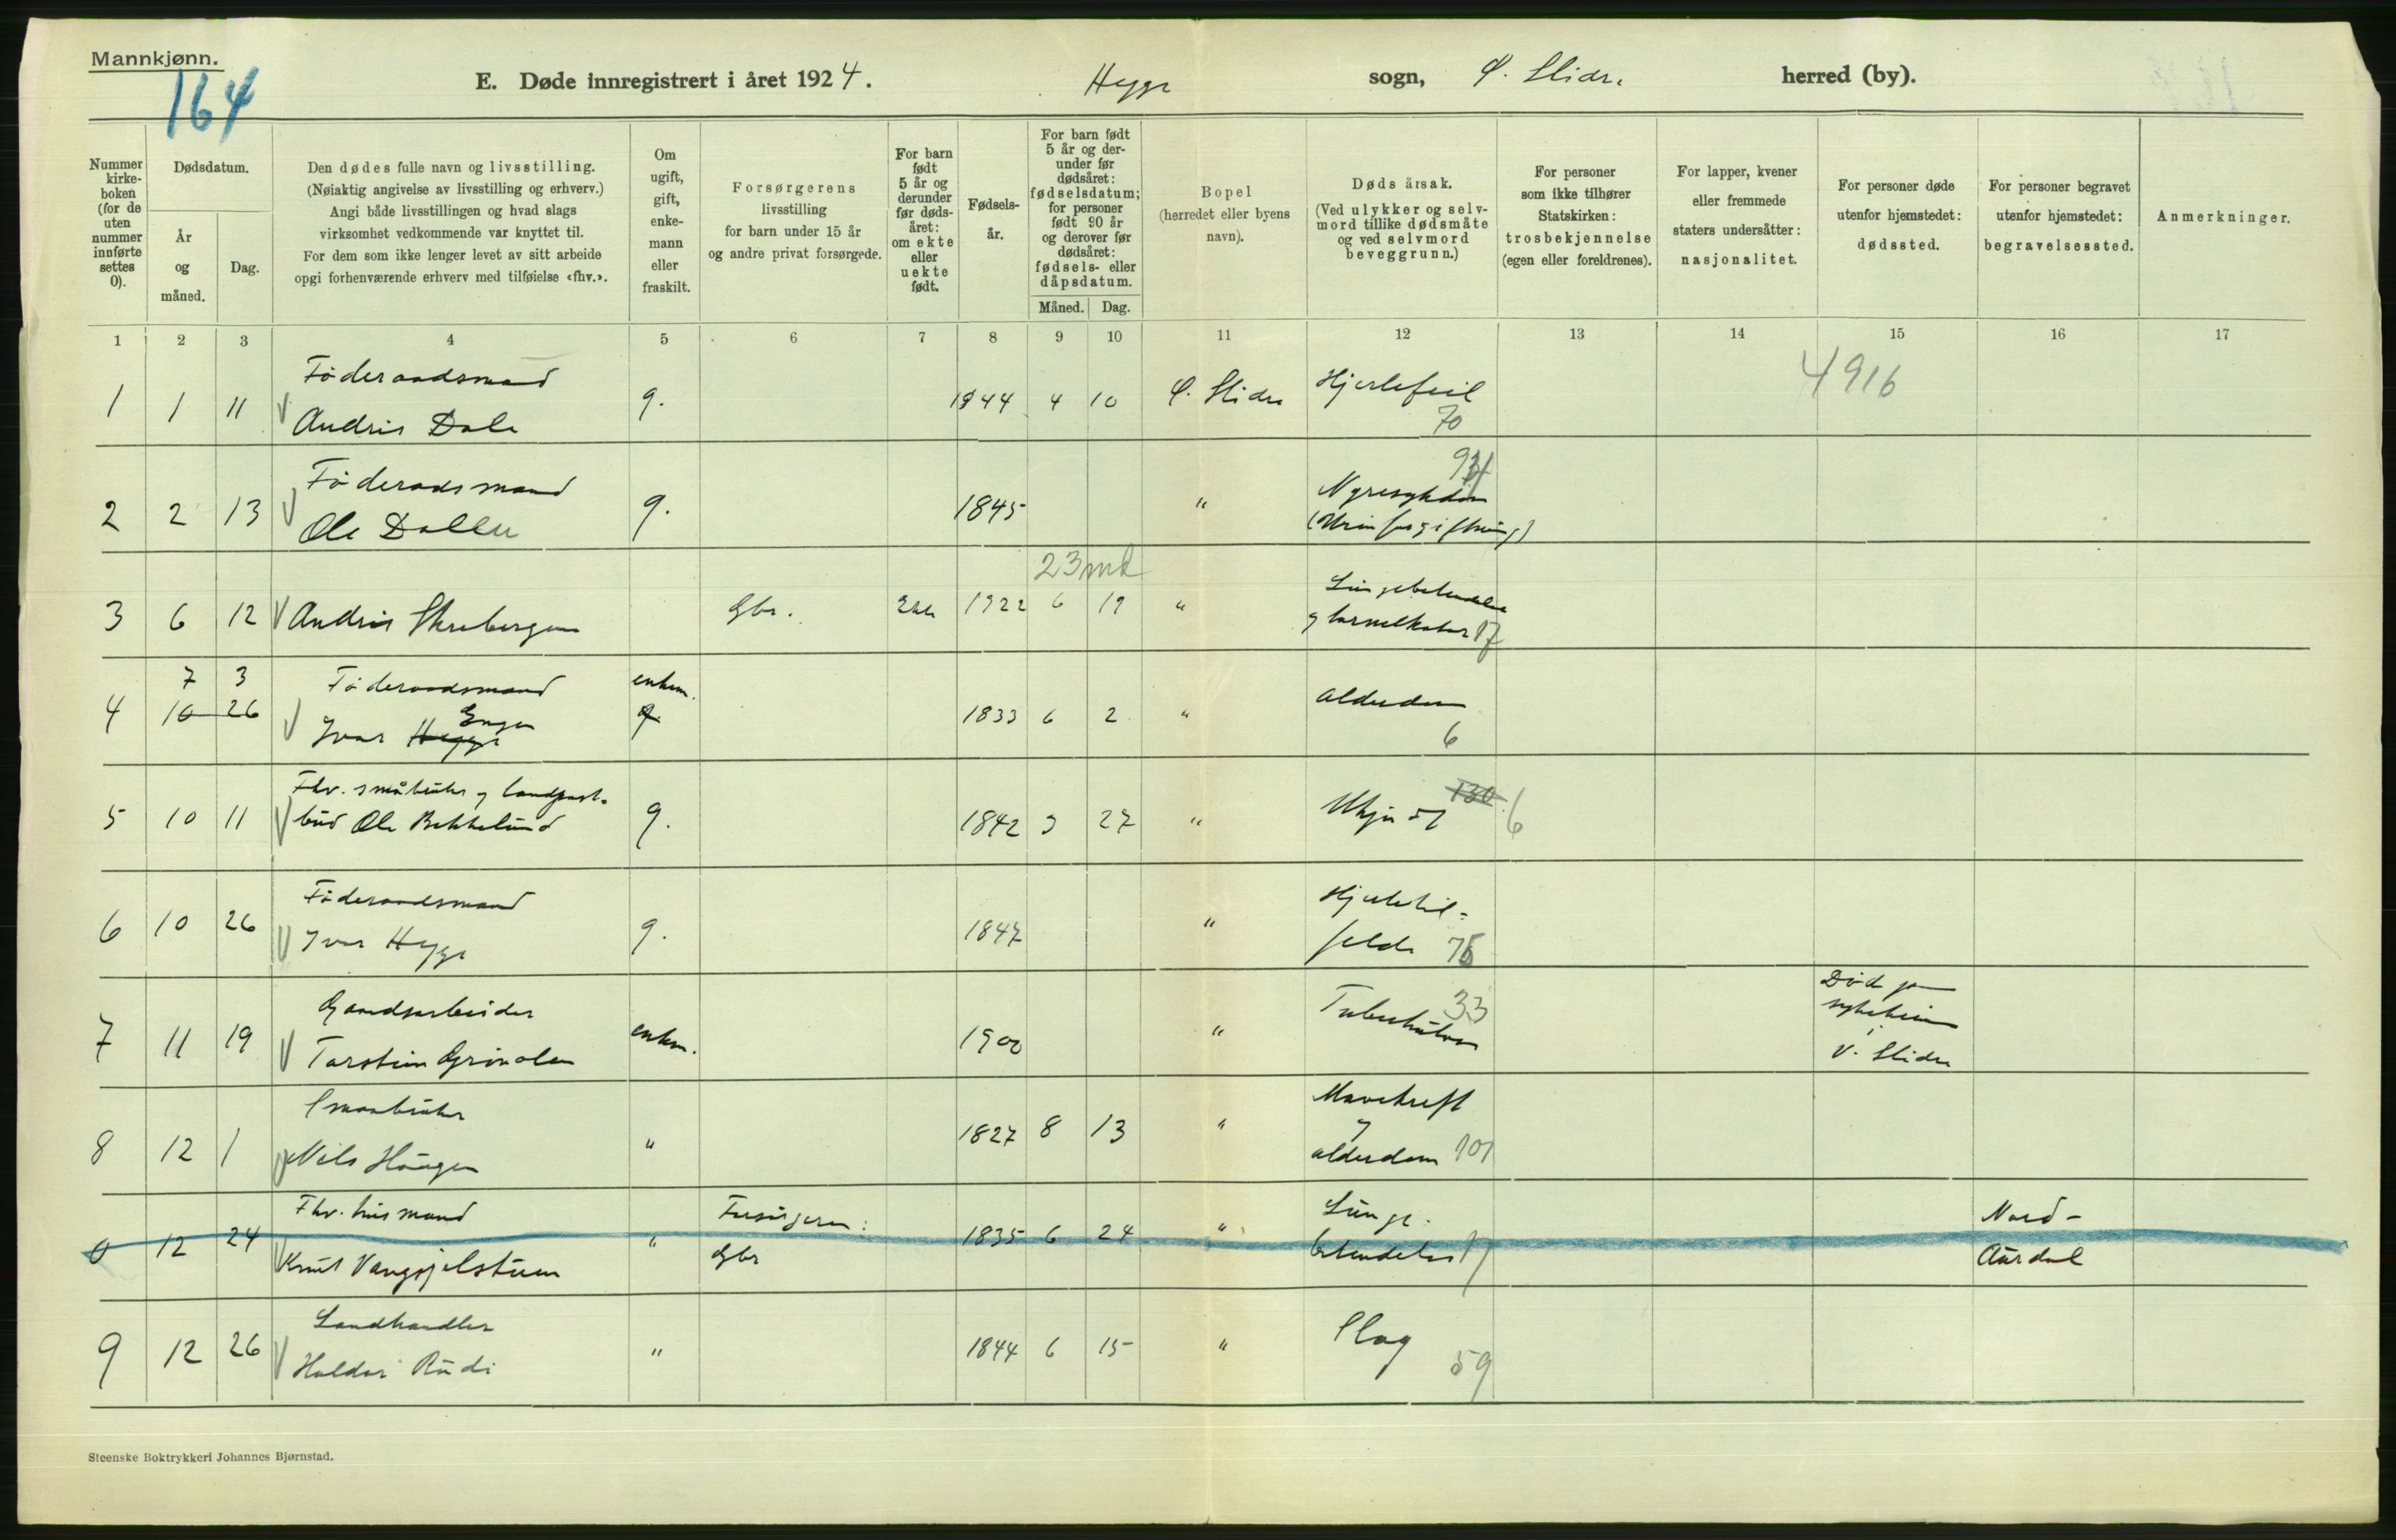 Mannkjønn.
164
E. Døde innregistrert i året 1924. Hegge sogn, Ø. Slidre herred (by).
Nummer kirke-boken (for de uten nummer innførte settes 0).
Dødsdatum.
År og måned.
Dag.
Den dødes fulle navn og livsstilling.
(Nøiaktig angivelse av livsstilling og erhverv.)
Angi både livsstillingen og hvad slags
virksomhet vedkommende var knyttet til.
For dem som ikke lenger levet av sitt arbeide
opgi forhenværende erhverv med tilføielse «fhv.».
Om ugift, gift, enke-mann eller fraskilt.
Forsørgerens
livsstilling
for barn under 15 år
og andre privat forsørgede.
For barn født 5 år og derunder før døds-året: om ekte eller uekte født.
Fødsels-år.
For barn født 5 år og der-under før dødsåret: fødselsdatum; for personer født 90 år og derover før dødsåret: fødsels- eller dåpsdatum.
Måned. Dag.
Bopel
(herredet eller byens navn).
Døds årsak.
(Ved ulykker og selv-mord tillike dødsmåte og ved selvmord beveggrunn.)
For personer som ikke tilhører Statskirken: trosbekjennelse (egen eller foreldrenes).
For lapper, kvener eller fremmede staters undersåtter: nasjonalitet.
For personer døde utenfor hjemstedet: dødssted.
For personer begravet utenfor hjemstedet: begravelsessted.
Anmerkninger.
1 2 3 4 5 6 7 8 9 10 11 12 13 14 15 16 17
4916
Föderaadsmand
1 1 11 V Andris Dale g. 1844 4 10 Ø. Slidre Hjertefeil
70
Föderaadsmand 93
2 2 13 V Ole Dalen g. 1845 " Nyresykdom
(Urinforgiftning)
23 md
3 6 12 V Andris Skrebergene Gbr. Ekte 1922 6 19 " Lungebetendelse
og tarmkatar 17
7 3 Föderaadsmand enkem.
4 10 26 V Ivar Hegge Engen g. 1833 6 2 " Alderdom
6
Fhv. småbruker og landpost-
5 10 11 V bud Ole Bekkelund g. 1842 3 27 " Ukjent 130 6
Föderaadsmand
6 10 26 V Ivar Hegge g. 1847 " Hjertetil-
felde 75
Gaardsarbeider 33
7 11 19 V Torstein Grinolen enkem. 1900 " Tuberkulose
Död på
sykeheim
i
V. Slidre
Smaabruker
8 12 1 V Nils Haugen " 1827 8 13 " Mavekreft
og
alderdom 101
Fhv. husmand Forsörgeren:
0 12 24 V Knut Vangsjelstuen " Gbr 1835 6 24 " Lunge-
betendelse 17
Nord-
Aurdal
Landhandler
9 12 26 V Haldor Rudi " 1844 6 15 " Slag
59
Steenske Boktrykkeri Johannes Bjørnstad.